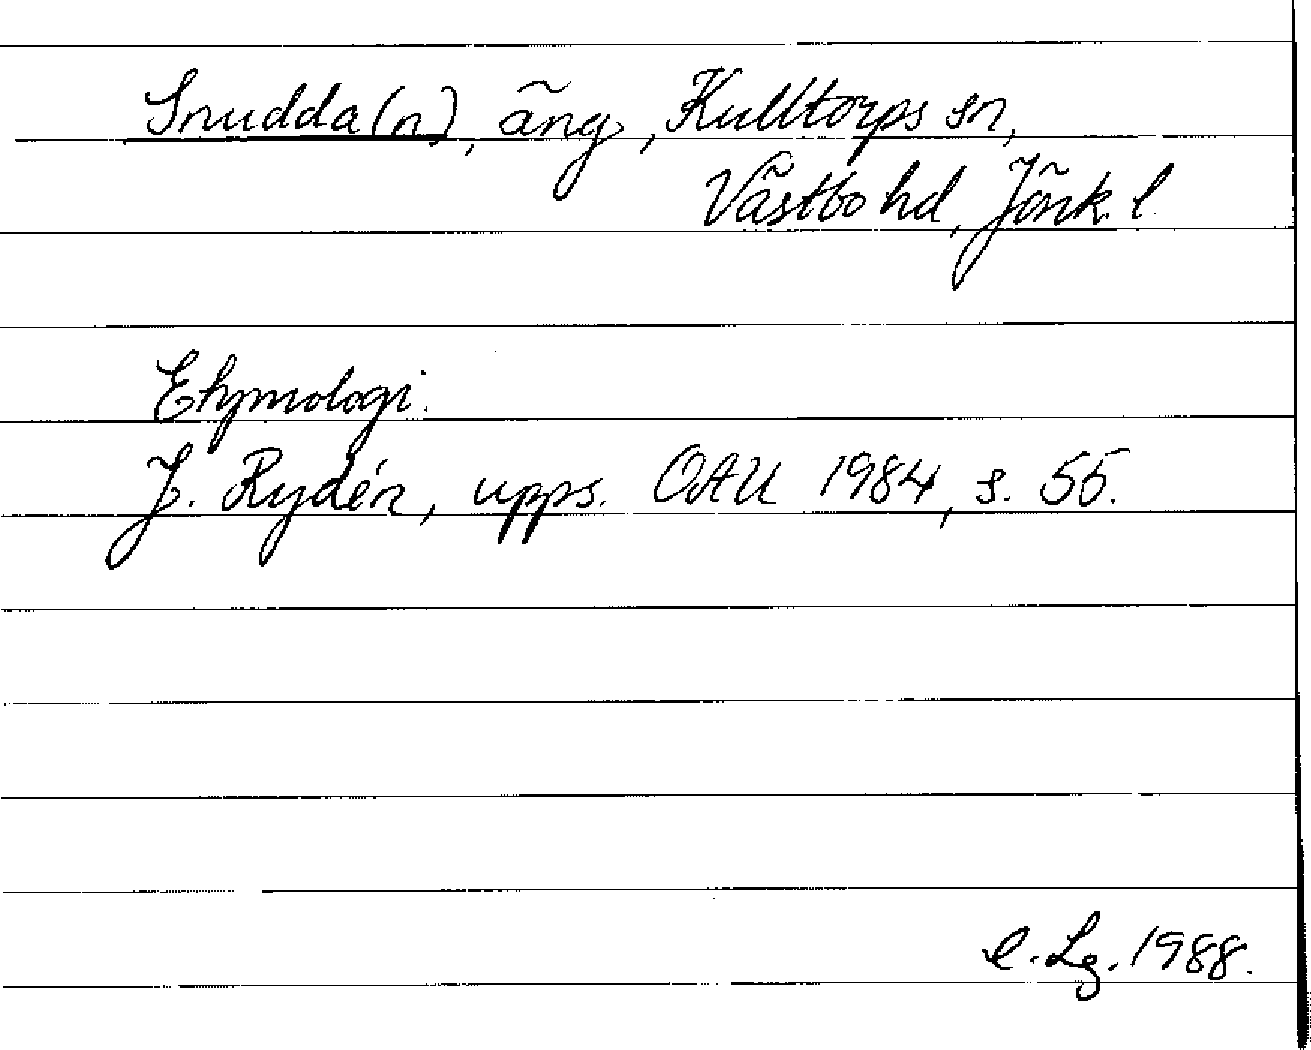 Snudda(n), äng, Kulltorps sn,
Västbo hd, Jönk. l.
Etymologi.
J. Rydén, upps. OAU 1984, s. 55.
E. Lg. 1988.